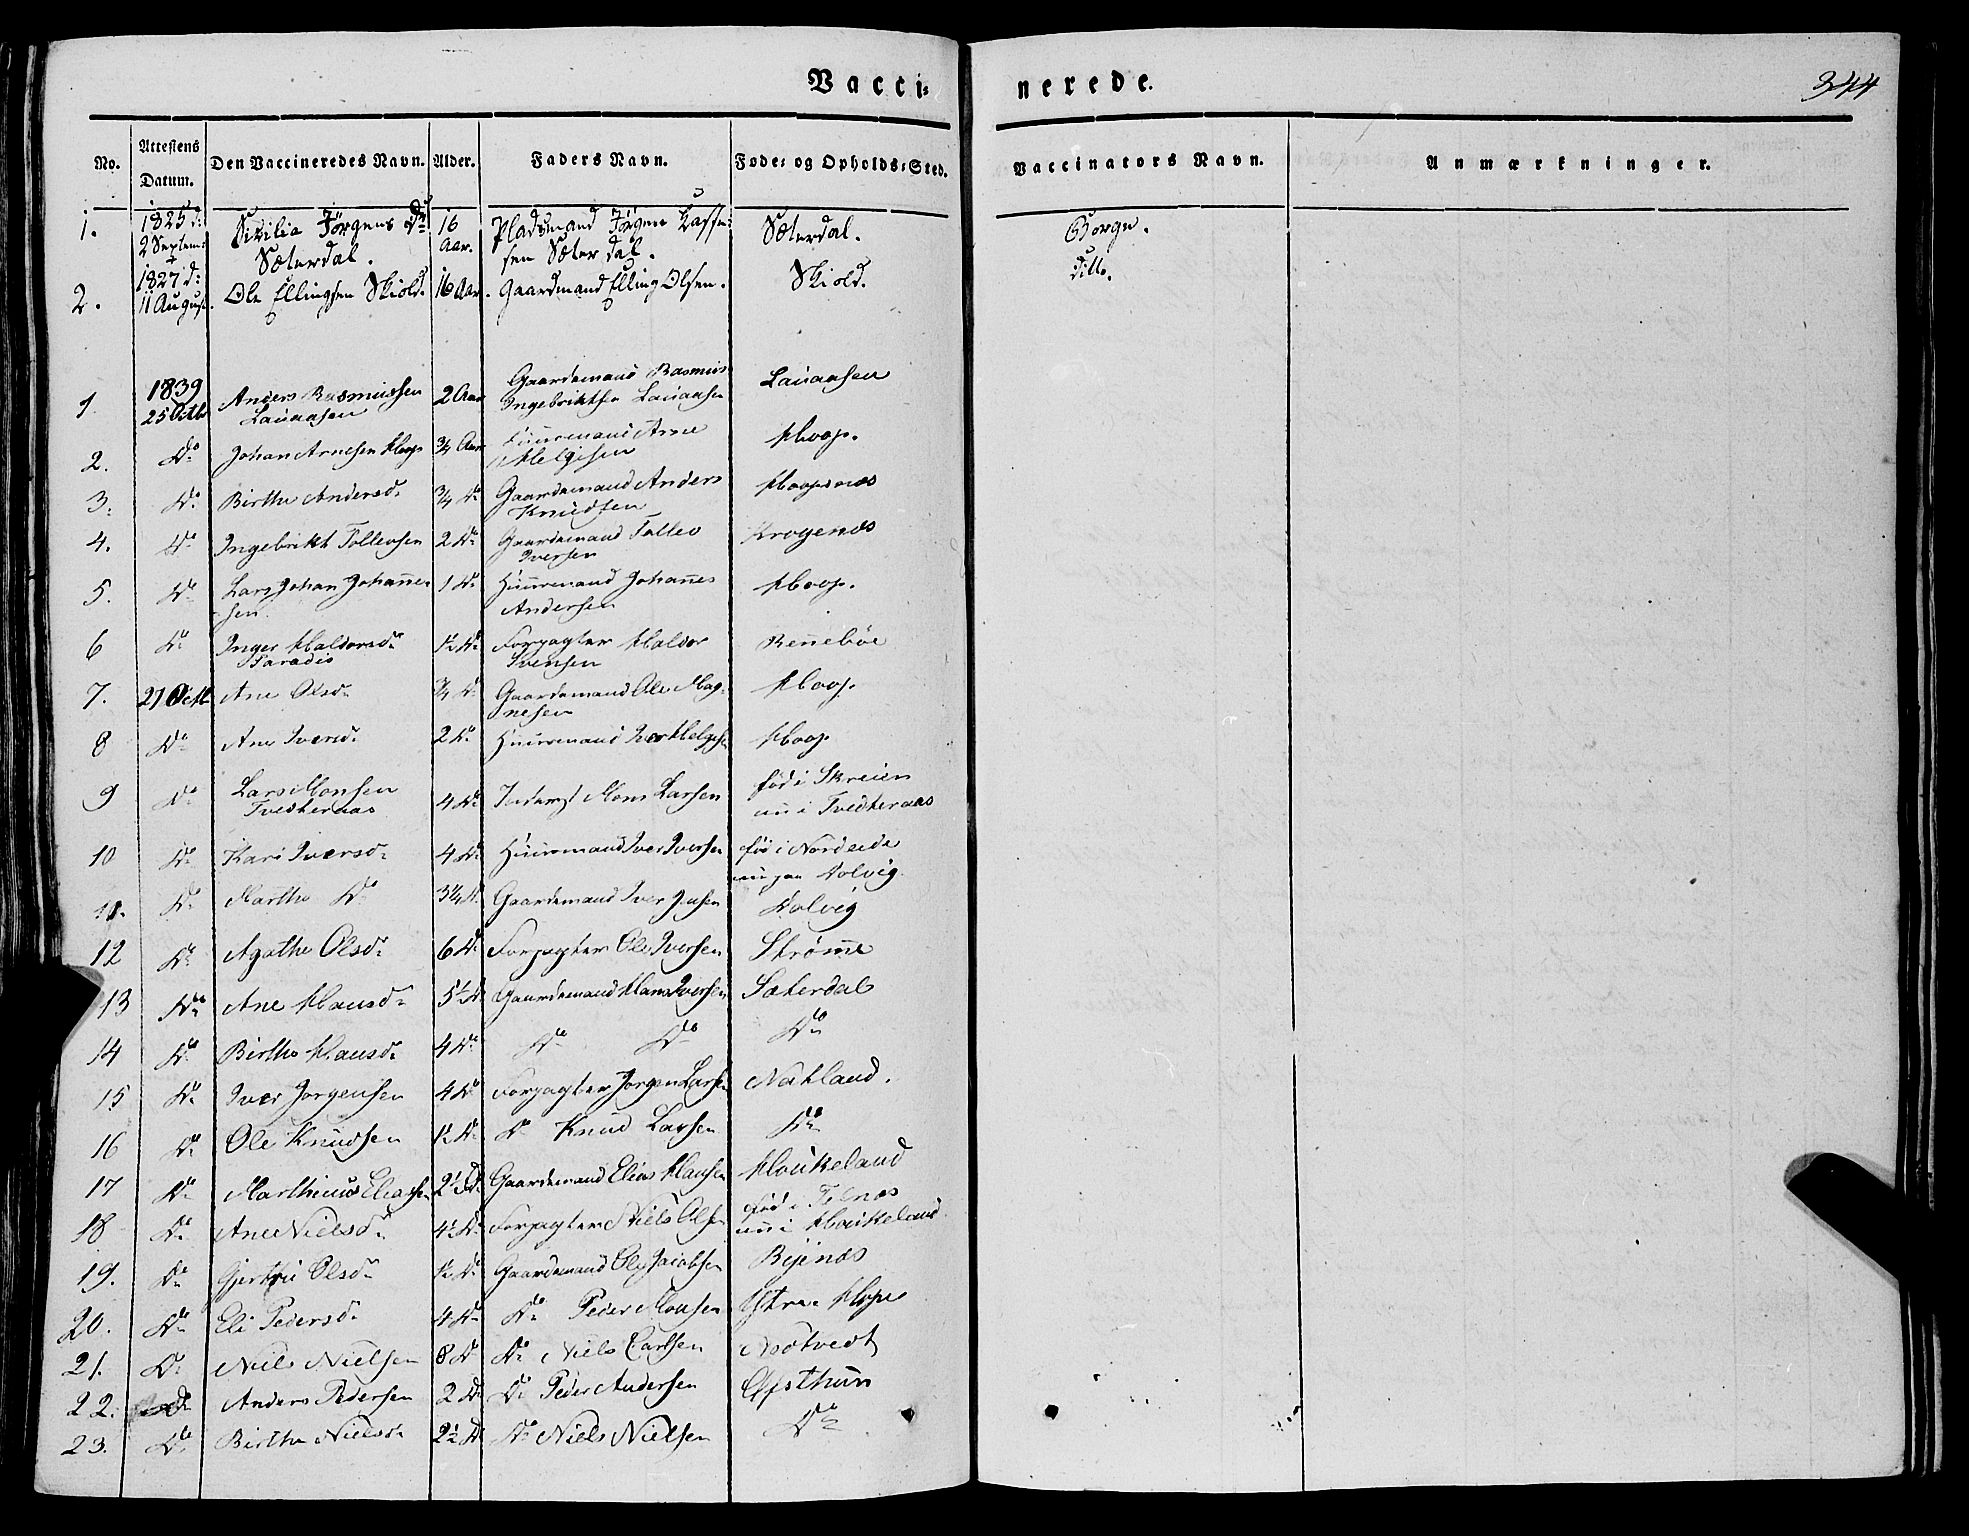 Vacci-
nerede.
344
No. Attestens Datum. Den Vaccineredes Navn. Alder. Faders Navn. Føde- og Opholds-Sted. Vaccinators Navn. Anmærkninger.
1. 1825 d: 2 Septem: Sivilia Jørgens Dr Sæterdal. 16 Aar. Pladsmand Jørgen Lasse- sen Sæterdal. Sæterdal. Borge.
2. 1827 d: 11 August. Ole Ellingsen Skiold. 16 Aar. Gaardmand Elling Olsen. Skiold. ditto.
1 1839 25 Octbr Anders Rasmussen Lauaasen 2 Aar Gaardemand Rasmus Ingebriktsen Lauaasen Lauaasen
2. Do Johan Arnesen Hoop 3/4 Aar Huusmand Arne Helgesen Hoop.
3. Do Birthe Andersd. 3/4 Do Gaardemand Anders Knudsen Hoopsnæs
4. Do Ingebrikt Tollevsen 2 Do Gaardemand Tollev Iversen Krogenæs
5. Do Lars Johan Johannes- sen. 1 Do Huusmand Johannes Andersen Hoop.
6 Do Inger Haldorsd. Paradis 1½ Do Forpagter Haldor Svensen Rennebøe
7. 27 Octb Ane Olsd. 3/4 Do Gaardemand Ole Mag- nesen Hoop
8 Do Ane Iversd. 2 Do Huusmand Iver Helgesen Hoop
9 Do Lars Monsen Tvedteraas 4 Do Inderst Mons Larsen fød i Skreien nu i Tvedteraas
10 Do Kari Iversd. 4 Do Huusmand Iver Iversen fød i Nordeide nu paa Dolvig.
11. Do Marthe Do 3¼ Do Gaardemand Iver Jensen Dolvig
12 Do Agathe Olsd. 6 Do Forpagter Ole Iversen Strømme
13 Do Ane Hansd. 5½ Do Gaardemand Hans Iversen Sæterdal
14 Do Birthe Hansd. 4 Do Do Do Do
15 Do Iver Jørgensen 4 Do Forpagter Jørgen Larsen Natland.
16 Do Ole Knudsen 1½ Do Do Knud Larsen Do
17 Do Marthinus Eliassen 2½ Do Gaardemand Elias Hansen Houkeland
18 Do Ane Nielsd. 4½ Do Forpagter Niels Olsen fød i Telnæs nu i Houkeland.
19. Do Gjertrü Olsd. 1½ Do Gaardemand Ole Jacobsen Birjenæs
20. Do Eli Pedersd. 4 Do Do Peder Monsen Ystre Hope
21. Do Niels Nielsen 8 Do Do Niels Carlsen Nødtvedt
22. Do Anders Pedersen 2 Do Do Peder Andersen Øfsthun
23. Do Birthe Nielsd. 2½ Do Do Niels Nielsen Do